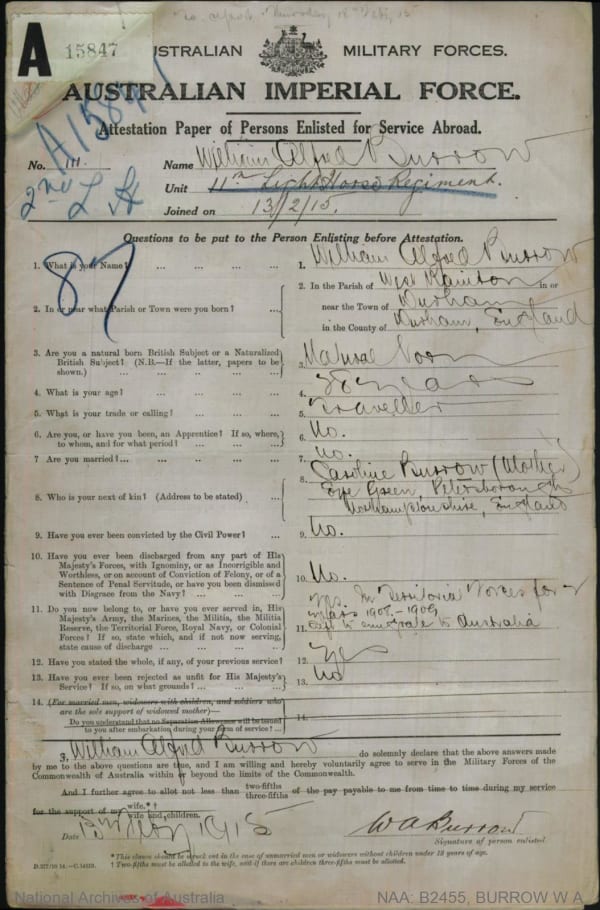 A 15847
AUSTRALIAN MILITARY FORCES.
AUSTRALIAN IMPERIAL FORCE.
Attestation Paper of Persons Enlisted for Service Abroad.
A15847
No. 111. Name William Alfred Burrow
2nd L H Unit 11th Light Horse Regiment.
Joined on 13/2/15.
Questions to be put to the Person Enlisting before Attestation.
1. What is your Name? ... ... ... ... 1. William Alfred Burrow
2. In or near what Parish or Town were you born? ... ... 2. In the Parish of West Rainton in or
near the Town of Durham
in the County of Durham, England
3. Are you a natural born British Subject or a Naturalized
British Subject? (N.B.—If the latter, papers to be
shown.) ... ... ... ... ... 3. Natural Born
4. What is your age? ... ... ... ... 4. years
5. What is your trade or calling? ... ... ... 5. Traveller
6. Are you, or have you been, an Apprentice? If so, where,
to whom, and for what period? ... ... ... 6. No.
7 Are you married? ... ... ... ... ... 7. No.
8. Who is your next of kin? (Address to be stated) ... 8. Caroline Burrow (Mother)
Eye Green, Peterborough
Northamptonshire, England
9. Have you ever been convicted by the Civil Power? ... 9. No.
10. Have you ever been discharged from any part of His
Majesty's Forces, with Ignominy, or as Incorrigible and
Worthless, or on account of Conviction of Felony, or of a
Sentence of Penal Servitude, or have you been dismissed
with Disgrace from the Navy? ... ... ... 10. No.
11. Do you now belong to, or have you ever served in, His
Majesty's Army, the Marines, the Militia, the Militia
Reserve, the Territorial Force, Royal Navy, or Colonial
Forces? If so, state which, and if not now serving,
state cause of discharge ... ... ... 11. Yes. In Territorial Forces for
years 1908-1909
left to emigrate to Australia
12. Have you stated the whole, if any, of your previous service? 12. Yes
13. Have you ever been rejected as unfit for His Majesty's
Service? If so, on what grounds? ... ... ... 13. No
14. (For married men, widowers with children, and soldiers who
are the sole support of widowed mother)—
Do you understand that no Separation Allowance will be issued
to you after embarkation during your term of service? ... 14.
I, William Alfred Burrow do solemnly declare that the above answers made
by me to the above questions are true, and I am willing and hereby voluntarily agree to serve in the Military Forces of the
Commonwealth of Australia within or beyond the limits of the Commonwealth.
And I further agree to allot not less than two-fifths three-fifths of the pay payable to me from time to time during my service
for the support of my wife.*† wife and children.
Date 13th 1915 W A Burrow
Signature of person enlisted.
* This clause should be struck out in the case of unmarried men or widowers without children under 18 years of age.
† Two-fifths must be allotted to the wife, and if there are children three-fifths must be allotted.
D.277/10 14.—C.14313.
National Archives of Australia NAA: B2455, BURROW W A